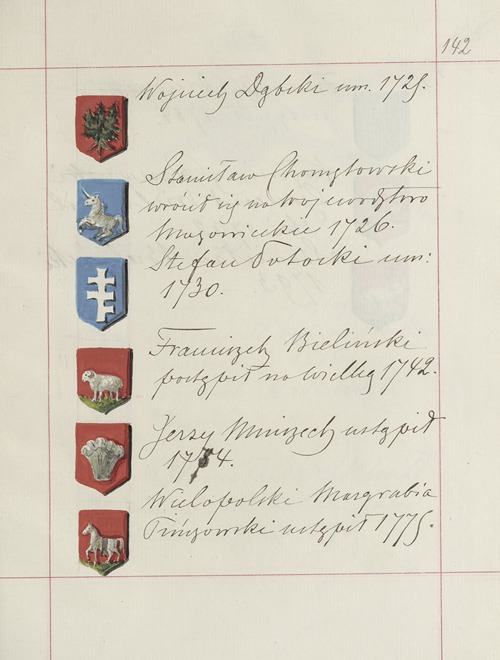 142
Wojciech Dąbski um. 1725.
Stanisław Chomętowski
wrócił się na Województwo
Mazowieckie 1726.
Stefan Potocki um:
1730.
Franciszek Bieliński
postąpił na wielką 1742.
Jerzy Mniszech ustąpił
1774.
Wielopolski Margrabia
ustąpił 1775.